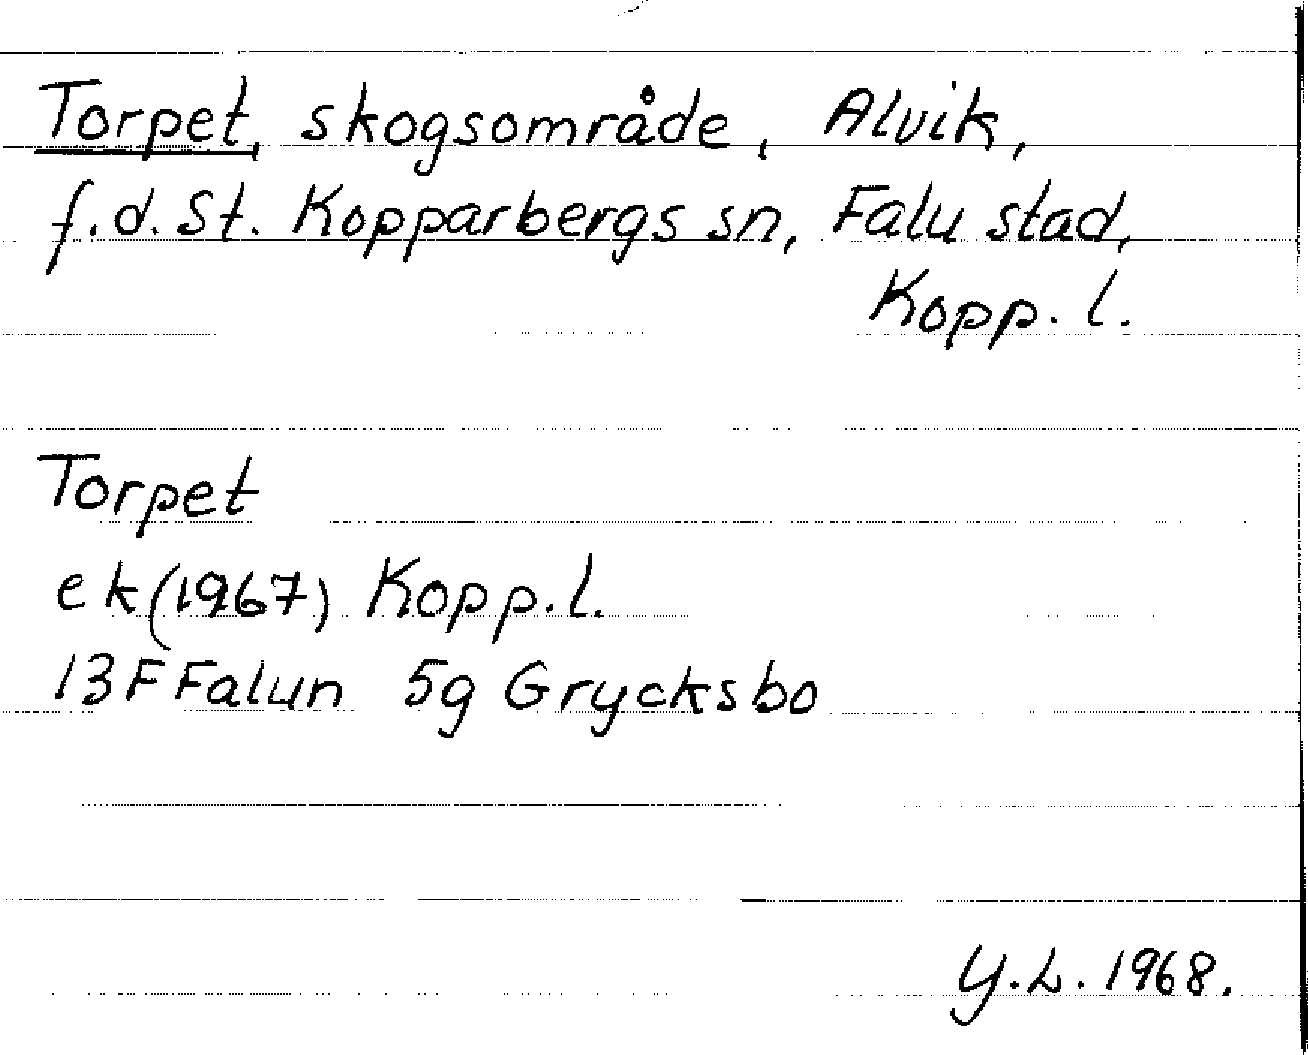 Torpet, skogsområde, Alvik,
f.d. St. Kopparbergs sn, Falu stad,
Kopp. l.
Torpet
ek (1967) Kopp. l.
13F Falun 5g Grycksbo
Y.L. 1968.